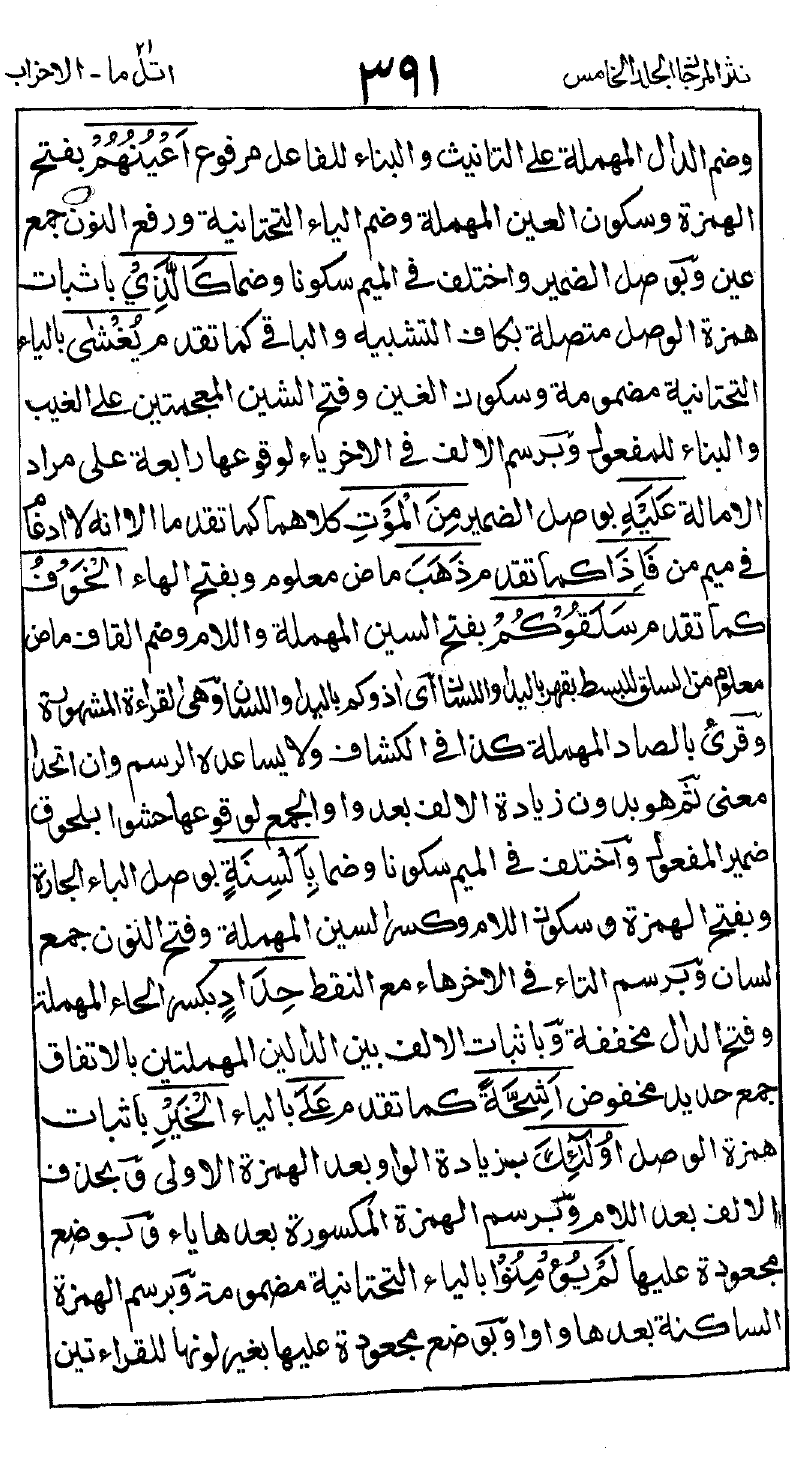 نثر المرجان المجلد الخامس
٣٩١
اتل ما ٢١ - الاحزاب
وضم الدال المهملة على التانيث والبناء للفاعل مرفوع اَعْيُنُهُمْ بفتح
الهمزة وسكون العين المهملة وضم الياء التحتانية ورفع النون جمع
عين وبوصل الضمير واختلف في الميم سكونا وضما كَالَّذِيْ باثبات
همزة الوصل متصلة بكاف التشبيه والباقي كما تقدم يُغْشٰى بالياء
التحتانية مضمومة وسكون الغين وفتح الشين المعجمتين على الغيب
والبناء للمفعول وبرسم الالف في الاخر ياء لوقوعها رابعة على مراد
الامالة عَلَيْهِ بوصل الضمير مِنَ الْمَوْتِ كلاهما كما تقدما الا انه لا ادغام
في ميم من فَاِذَا كما تقدم ذَهَبَ ماض معلوم وبفتح الهاء الْخَوْفُ
كما تقدم سَلَقُوْكُمْ بفتح السين المهملة واللام وضم القاف ماض
معلوم من السلق للبسط بقهر باليد واللسان اى اذوكم باليد واللسان وهى القراءة المشهورة
وقرئ بالصاد المهملة كذا في الكشاف ولا يساعده الرسم وان اتحدا
معنى ثم هو بدون زيادة الالف بعد واو الجمع لوقوعها حشوا بلحوق
ضمير المفعول واختلف في الميم سكونا وضما بِاَلْسِنَةٍ بوصل الباء الجارة
وبفتح الهمزة وسكون اللام وكسر السين المهملة وفتح النون جمع
لسان وبرسم التاء في الاخر هاء مع النقط حِدَادٍ بكسر الحاء المهملة
وفتح الدال مخففة وباثبات الالف بين الدالين المهملتين بالاتفاق
جمع حديد مخفوض اَشِحَّةً كما تقدم عَلَى بالياء الْخَيْرِ باثبات
همزة الوصل اُولٰٓئِكَ بزيادة الواو بعد الهمزة الاولى وبحذف
الالف بعد اللام وبرسم الهمزة المكسورة بعدها ياء وبوضع
مجعودة عليها لَمْ يُؤْمِنُوْا بالياء التحتانية مضمومة وبرسم الهمزة
الساكنة بعدها واوا وبوضع مجعودة عليها بغير لونها للقراءتين